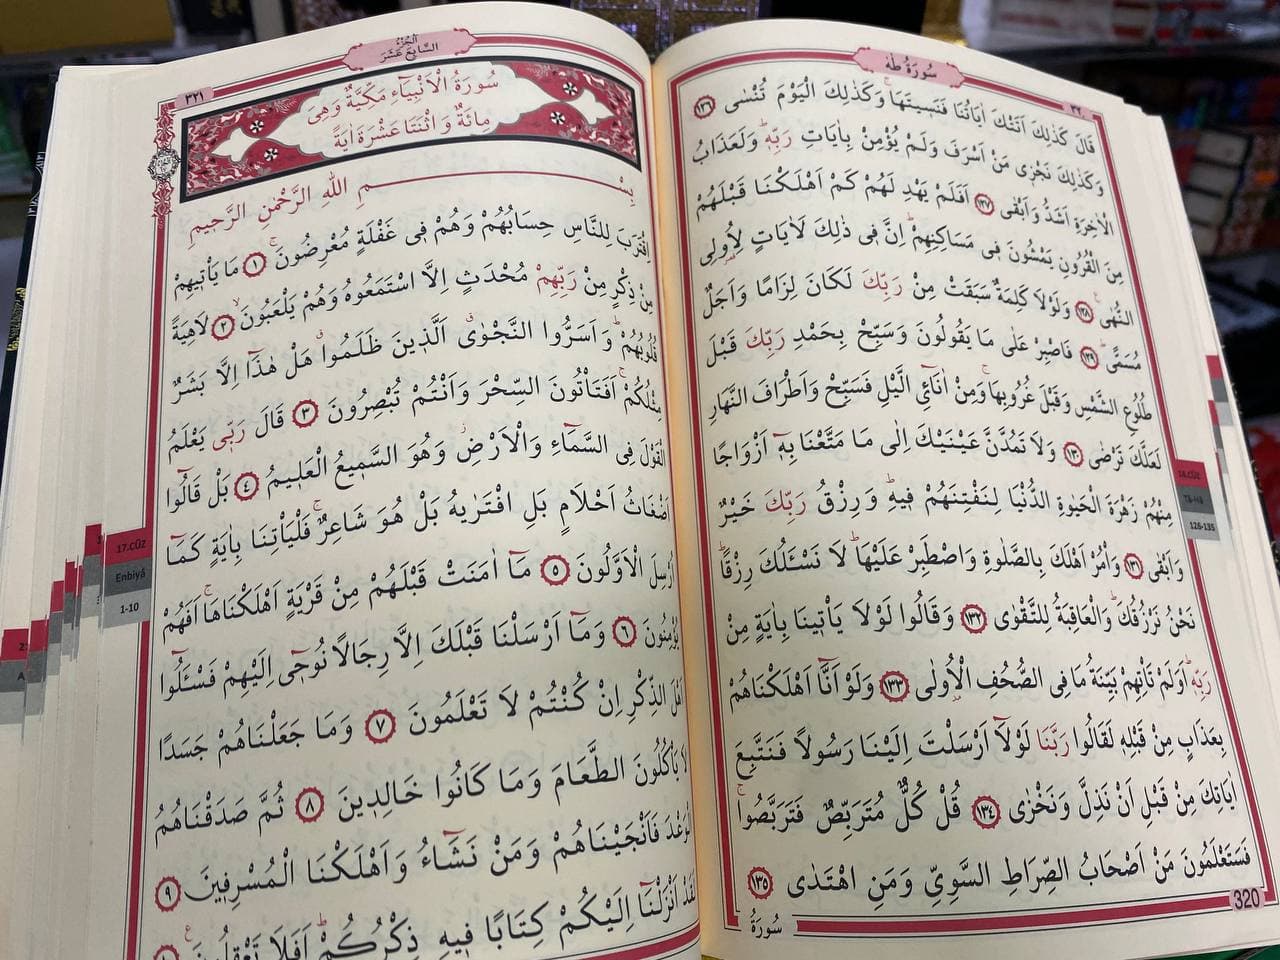 سُورَةُ طٰهٰ
قَالَ كَذٰلِكَ اَتَتْكَ اٰيَاتُنَا فَنَسِيتَهَاۚ وَكَذٰلِكَ الْيَوْمَ تُنْسٰى ﴿١٢٦﴾
وَكَذٰلِكَ نَجْزِى مَنْ اَسْرَفَ وَلَمْ يُؤْمِنْ بِاٰيَاتِ رَبِّه۪ۜ وَلَعَذَابُ
الْاٰخِرَةِ اَشَدُّ وَاَبْقٰى ﴿١٢٧﴾ اَفَلَمْ يَهْدِ لَهُمْ كَمْ اَهْلَكْنَا قَبْلَهُمْ
مِنَ الْقُرُونِ يَمْشُونَ فِى مَسَاكِنِهِمْۜ اِنَّ فِى ذٰلِكَ لَاٰيَاتٍ لِاُو۬لِى
النُّهٰى۟ ﴿١٢٨﴾ وَلَوْلَا كَلِمَةٌ سَبَقَتْ مِنْ رَبِّكَ لَكَانَ لِزَامًا وَاَجَلٌ
مُسَمًّىۜ ﴿١٢٩﴾ فَاصْبِرْ عَلٰى مَا يَقُولُونَ وَسَبِّحْ بِحَمْدِ رَبِّكَ قَبْلَ
طُلُوعِ الشَّمْسِ وَقَبْلَ غُرُوبِهَاۚ وَمِنْ اٰنَٓائِ الَّيْلِ فَسَبِّحْ وَاَطْرَافَ النَّهَارِ
لَعَلَّكَ تَرْضٰى ﴿١٣٠﴾ وَلَا تَمُدَّنَّ عَيْنَيْكَ اِلٰى مَا مَتَّعْنَا بِه۪ٓ اَزْوَاجًا
مِنْهُمْ زَهْرَةَ الْحَيٰوةِ الدُّنْيَا لِنَفْتِنَهُمْ ف۪يهِۜ وَرِزْقُ رَبِّكَ خَيْرٌ
وَاَبْقٰى ﴿١٣١﴾ وَأْمُرْ اَهْلَكَ بِالصَّلٰوةِ وَاصْطَبِرْ عَلَيْهَاۜ لَا نَسْـَٔلُكَ رِزْقًاۜ
نَحْنُ نَرْزُقُكَۜ وَالْعَاقِبَةُ لِلتَّقْوٰى ﴿١٣٢﴾ وَقَالُوا لَوْلَا يَأْت۪ينَا بِاٰيَةٍ مِنْ
رَبِّه۪ۜ اَوَلَمْ تَأْتِهِمْ بَيِّنَةُ مَا فِى الصُّحُفِ الْاُو۫لٰى ﴿١٣٣﴾ وَلَوْ اَنَّٓا اَهْلَكْنَاهُمْ
بِعَذَابٍ مِنْ قَبْلِه۪ لَقَالُوا رَبَّنَا لَوْلَٓا اَرْسَلْتَ اِلَيْنَا رَسُولًا فَنَتَّبِعَ
اٰيَاتِكَ مِنْ قَبْلِ اَنْ نَذِلَّ وَنَخْزٰى ﴿١٣٤﴾ قُلْ كُلٌّ مُتَرَبِّصٌ فَتَرَبَّصُواۚ
فَسَتَعْلَمُونَ مَنْ اَصْحَابُ الصِّرَاطِ السَّوِىِّ وَمَنِ اهْتَدٰى ﴿١٣٥﴾
سُورَةُ
320
16.CÜZ
Tâ-Hâ
126-135
اَلْجُزْءُ
السَّابِعَ عَشَرَ
٣٢١
سُورَةُ الْاَنْبِيَاءِ مَكِّيَّةٌ وَهِىَ
مِائَةٌ وَ اثْنَتَا عَشْرَةَ اٰيَةً
بِسْمِ اللّٰهِ الرَّحْمٰنِ الرَّح۪يمِ
اِقْتَرَبَ لِلنَّاسِ حِسَابُهُمْ وَهُمْ ف۪ى غَفْلَةٍ مُعْرِضُونَۚ ﴿١﴾ مَا يَأْت۪يهِمْ
مِنْ ذِكْرٍ مِنْ رَبِّهِمْ مُحْدَثٍ اِلَّا اسْتَمَعُوهُ وَهُمْ يَلْعَبُونَۙ ﴿٢﴾ لَاهِيَةً
قُلُوبُهُمْۜ وَاَسَرُّوا النَّجْوٰىۗ اَلَّذ۪ينَ ظَلَمُواۗ هَلْ هٰذَٓا اِلَّا بَشَرٌ
مِثْلُكُمْۚ اَفَتَأْتُونَ السِّحْرَ وَاَنْتُمْ تُبْصِرُونَ ﴿٣﴾ قَالَ رَبّ۪ى يَعْلَمُ
الْقَوْلَ فِى السَّمَٓاءِ وَالْاَرْضِۘ وَهُوَ السَّم۪يعُ الْعَل۪يمُ ﴿٤﴾ بَلْ قَالُٓوا
اَضْغَاثُ اَحْلَامٍ بَلِ افْتَرٰيهُ بَلْ هُوَ شَاعِرٌۚ فَلْيَأْتِنَا بِاٰيَةٍ كَمَٓا
اُرْسِلَ الْاَوَّلُونَ ﴿٥﴾ مَٓا اٰمَنَتْ قَبْلَهُمْ مِنْ قَرْيَةٍ اَهْلَكْنَاهَاۚ اَفَهُمْ
يُؤْمِنُونَ ﴿٦﴾ وَمَٓا اَرْسَلْنَا قَبْلَكَ اِلَّا رِجَالًا نُوح۪ٓى اِلَيْهِمْ فَسْـَٔلُٓوا
اَهْلَ الذِّكْرِ اِنْ كُنْتُمْ لَا تَعْلَمُونَ ﴿٧﴾ وَمَا جَعَلْنَاهُمْ جَسَدًا
لَا يَأْكُلُونَ الطَّعَامَ وَمَا كَانُوا خَالِد۪ينَ ﴿٨﴾ ثُمَّ صَدَقْنَاهُمُ
الْوَعْدَ فَاَنْجَيْنَاهُمْ وَمَنْ نَشَٓاءُ وَاَهْلَكْنَا الْمُسْرِف۪ينَ ﴿٩﴾
لَقَدْ اَنْزَلْنَٓا اِلَيْكُمْ كِتَابًا ف۪يهِ ذِكْرُكُمْۜ اَفَلَا تَعْقِلُونَ۟
17.CÜZ
Enbiyâ
1-10